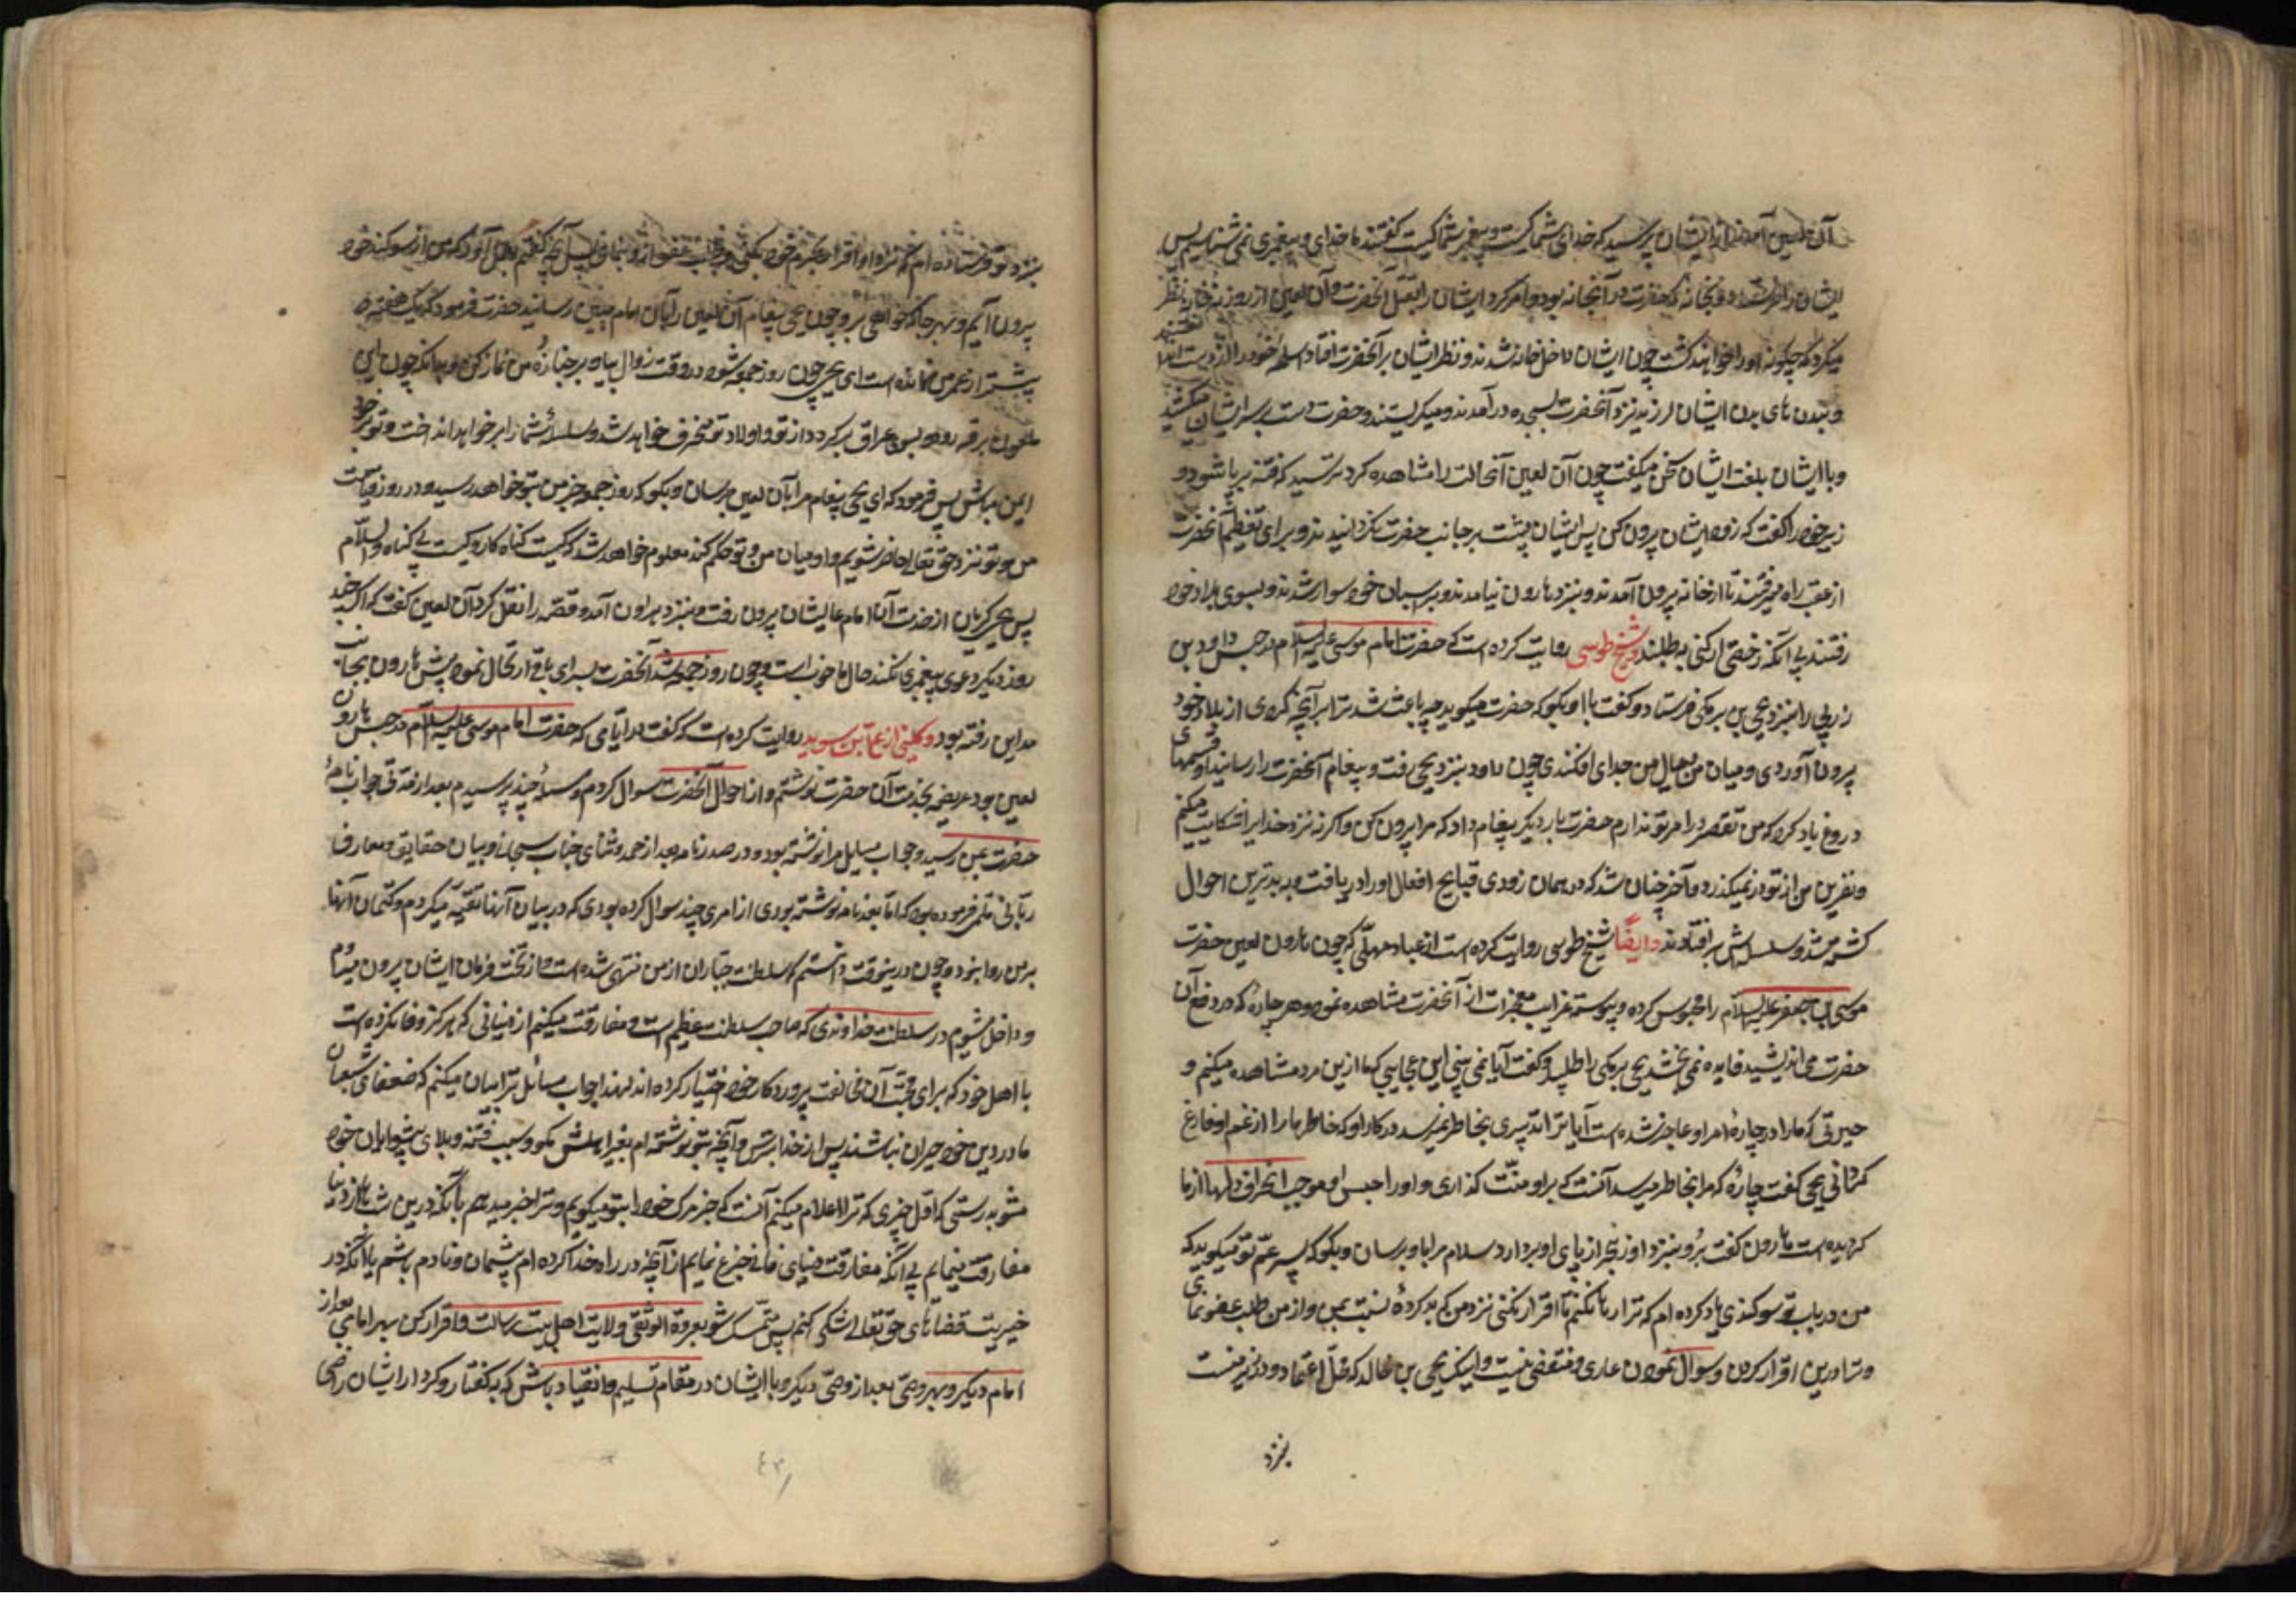 آن لعین آمدند از ایشان پرسید که خدای شما کیست و پیغمبر شما کیست گفتند ما خدای و پیغمبری نمی شناسیم پس
ایشان را فرستاد بخانه که حضرت در آنخانه بود و امر کرد ایشان را بقتل آنحضرت و آن لعین از روزنه خانه نظر
میکرد که چگونه او را خواهند کشت چون ایشان داخل خانه شدند و نظر ایشان بر آنحضرت افتاد اسلحه خود را از دست انداختند
و بدن های ایشان لرزید نزد آنحضرت بسجده در آمدند و میگریستند و حضرت دست بر سر ایشان میکشید
و با ایشان بلغت ایشان سخن میگفت چون آن لعین آنحالت را مشاهده کرد ترسید که فتنه بر پا شود و
زیر خود را گفت که زود ایشان را بیرون کن پس ایشان پشت بر جانب حضرت نگردانیدند و برای تعظیم آنحضرت
از عقب راه میرفتند تا از خانه بیرون آمدند و بنزد هارون نیامدند و بر اسبان خود سوار شدند و بسوی بلاد خود
رفتند بی آنکه رخصتی از کسی بطلبند و شیخ طوسی روایت کرده است که حضرت امام موسی علیه السلام در حبس داود بن
زربی را بنزد یحیی بن برمکی فرستاد و گفت با او بگو که حضرت میگوید چه باعث شد ترا بر آنچه کردی از بلاد خود
بیرون آوردی و میان من و عیال من جدای افکندی چون داود بنزد یحیی رفت و پیغام آنحضرت را رسانید او قسمهای
دروغ یاد کرد که من تقصیر در امر تو ندارم حضرت بار دیگر پیغام داد که مرا بیرون کن و اگرنه نزد خدا برای تو شکایت میکنم
و نفرین من از تو در نمیگذرد و آخر چنان شد که در همان زودی قبایح افعال او را دریافت و به بدترین احوال
کشته شد و سلسله اش بر افتادند و ایضا شیخ طوسی روایت کرده است از عباد مهلبی که چون هارون لعین حضرت
موسی بن جعفر علیه السلام را محبوس کرده و پیوسته غرایب معجزات از آنحضرت مشاهده نمود و هر چاره که در دفع آن
حضرت می اندیشید فایده نمی بخشد یحیی برمکی را طلبید و گفت آیا نمی بینی این عجایبی که ما ازین مرد مشاهده میکنیم و
حیرتی که ما را در چاره امر او عاجز شده است آیا ترا تدبیری بخاطر نمیرسد در کار او که خاطر ما را از غم او فارغ
گردانی یحیی گفت چاره که مرا بخاطر میرسد آنست که بر او منت گذاری و او را حبس او موجب انحراف دلها از ما
گردیده است هارون گفت برو بنزد او زنجیر از پای او بردار و سلام مرا باو برسان و بگو که پسر عم تو میگوید که
من در باب تو سوگندی یاد کرده ام که ترا رها نکنم تا اقرار نکنی نزد من که بد کرده نسبت بمن و از من طلب عفو نمای
و ترا درین اقرار کردن و سوال نمودن عاری و منقصی نیست و اینک یحیی بن خالد که محل اعتماد و وزیر منست
بنزد
بنزد تو فرستاده ام که نزد او اقرار بجرم خود بکنی و طلب عفو از و بنمای پس آنچه گفتم بعمل آور که من از سوگند خود
بیرون آیم و بهر جا که خواهی برو چون یحیی پیغام آن لعین را بآن امام مبین رسانید حضرت فرمود که یک هفته
پیشتر از عمر من نمانده است ای یحیی چون روز جمعه شود در وقت زوال بیا و بر جنازه من نماز کن و بدانکه چون این
ملعون برقه رود و بسوی عراق برگردد از تو و اولاد تو منحرف خواهد شد و سلسله شما را بر خواهد انداخت و تو بر خود
ایمن مباش پس فرمود که ای یحیی پیغام مرا بآن لعین برسان و بگو که روز جمعه خبر من بتو خواهد رسید و در روز قیامت
من و تو نزد حق تعالی حاضر شویم و او میان من و تو حکم کند معلوم خواهد شد که کیست گناه کار و کیست بی گناه والسلام
پس یحیی گریان از خدمت آن امام عالیشان بیرون رفت و بنزد هارون آمد و قصه را نقل کرد آن لعین گفت که اگر چند
روز دیگر دعوی پیغمبری نکند حال ما خوبست و چون روز جمعه شد آنحضرت بسرای باقی ارتحال نمود پیش هارون بجانب
مداین رفته بود و کلینی از علی بن سوید روایت کرده است که گفت در ایامی که حضرت امام موسی علیه السلام در حبس هارون
لعین بود عریضه بخدمت آن حضرت نوشتم و از احوال آنحضرت سوال کردم و مسئله چند پرسیدم بعد از مدتی جواب نامه
حضرت بمن رسید و جواب مسایل مرا نوشته بود و در صدر نامه بعد از حمد و ثنای جناب سبحانی و بیان حقایق و معارف
ربانی قلمی فرموده بود که اما بعد نامه نوشته بودی از امری چند سوال کرده بودی که در بیان آنها تقیه میکردم و کتمان آنها
بر من روا بود و چون درین وقت دانستم که سلطنت جباران از من منتهی شده است و از تحت فرمان ایشان بیرون میروم
و داخل میشوم در سلطنت خداوندی که صاحب سلطنت عظیم است و مفارقت میکنم از دنیای که هرگز وفا نکرده است
با اهل خود که برای محبت آن مخالفت پروردگار خود اختیار کرده اند لهذا جواب مسائل ترا بیان میکنم که ضعفای شیعیان
ما در دین خود حیران نباشند پس از خدا بترس و آنچه بتو نوشته ام بغیر اهلش مگو و سبب فتنه و بلای پیشوایان خود
مشو بدرستی که اول چیزی که ترا اعلام میکنم آنست که خبر مرگ خود را بتو میگویم و ترا خبر میدهم بآنکه درین شبها از دنیا
مفارقت مینمایم بی آنکه مفارقت دنیای فانی جزع نمایم از آنچه در راه خدا کرده ام پشیمان و نادم باشم یا آنکه در
خیریت قضاهای حق تعالی شکی کنم پس متمسک شو بعروة الوثقی ولایت اهل بیت رسالت و اقرار کن بهر امامی بعد از
امام دیگر و بهر وصی بعد از وصی دیگر و با ایشان در مقام تسلیم و انقیاد باش که به گفتار و کردار ایشان راضی